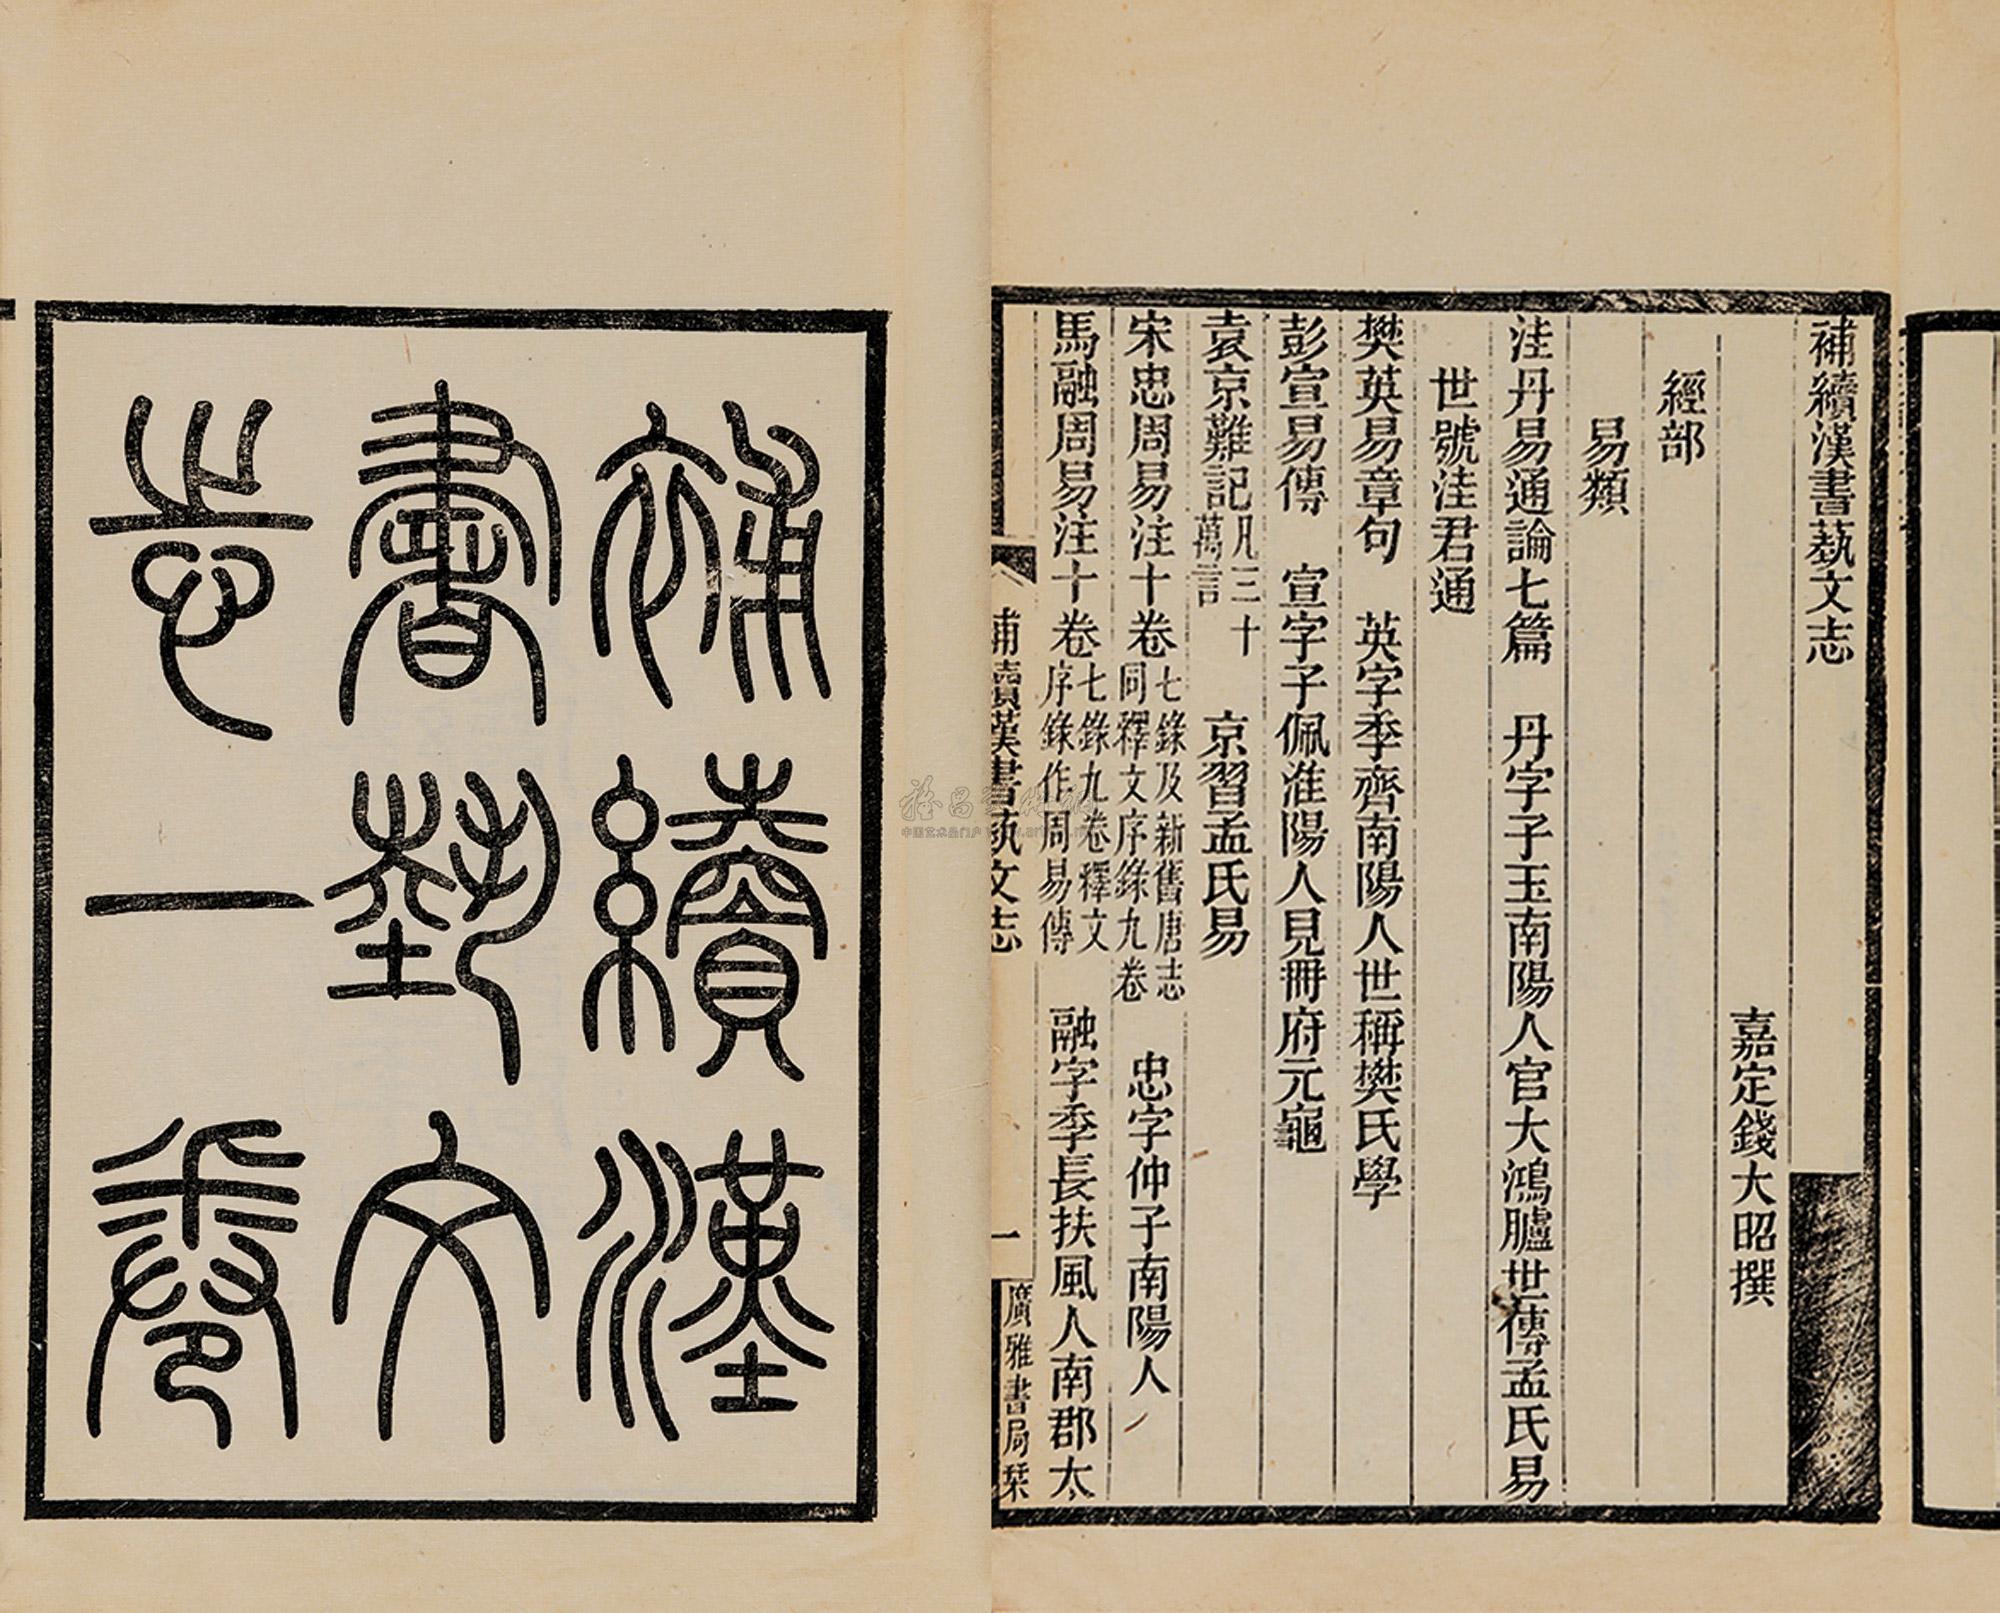 補續漢
書埶文
志一卷
補續漢書蓺文志
嘉定錢大昭撰
經部
易類
洼丹易通論七篇　丹字子玉南陽人官大鴻臚世傳孟氏易
世號洼君通
樊英易章句　英字季齊南陽人世稱樊氏學
彭宣易傳　宣字子佩淮陽人見冊府元龜
袁京難記凡三十萬言　京習孟氏易
宋忠周易注十卷七錄及新舊唐志同釋文序錄九卷　忠字仲子南陽人
馬融周易注十卷七錄九卷釋文序錄作周易傳　融字季長扶風人南郡太
補續漢書蓺文志
一
廣雅書局栞